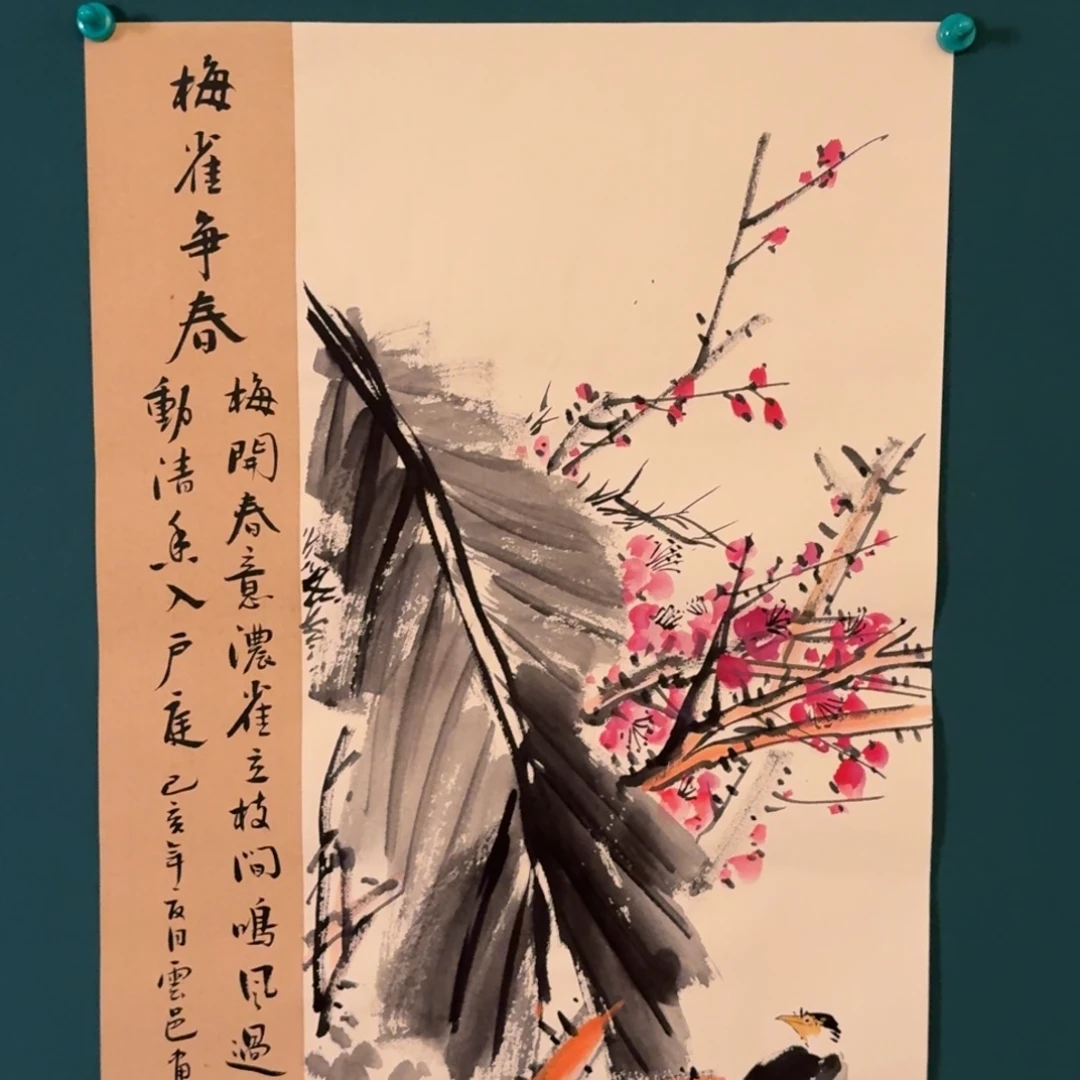 梅雀争春
梅開春意濃雀立枝間鳴风過
動清香入戶庭
己亥年夏日雲邑画